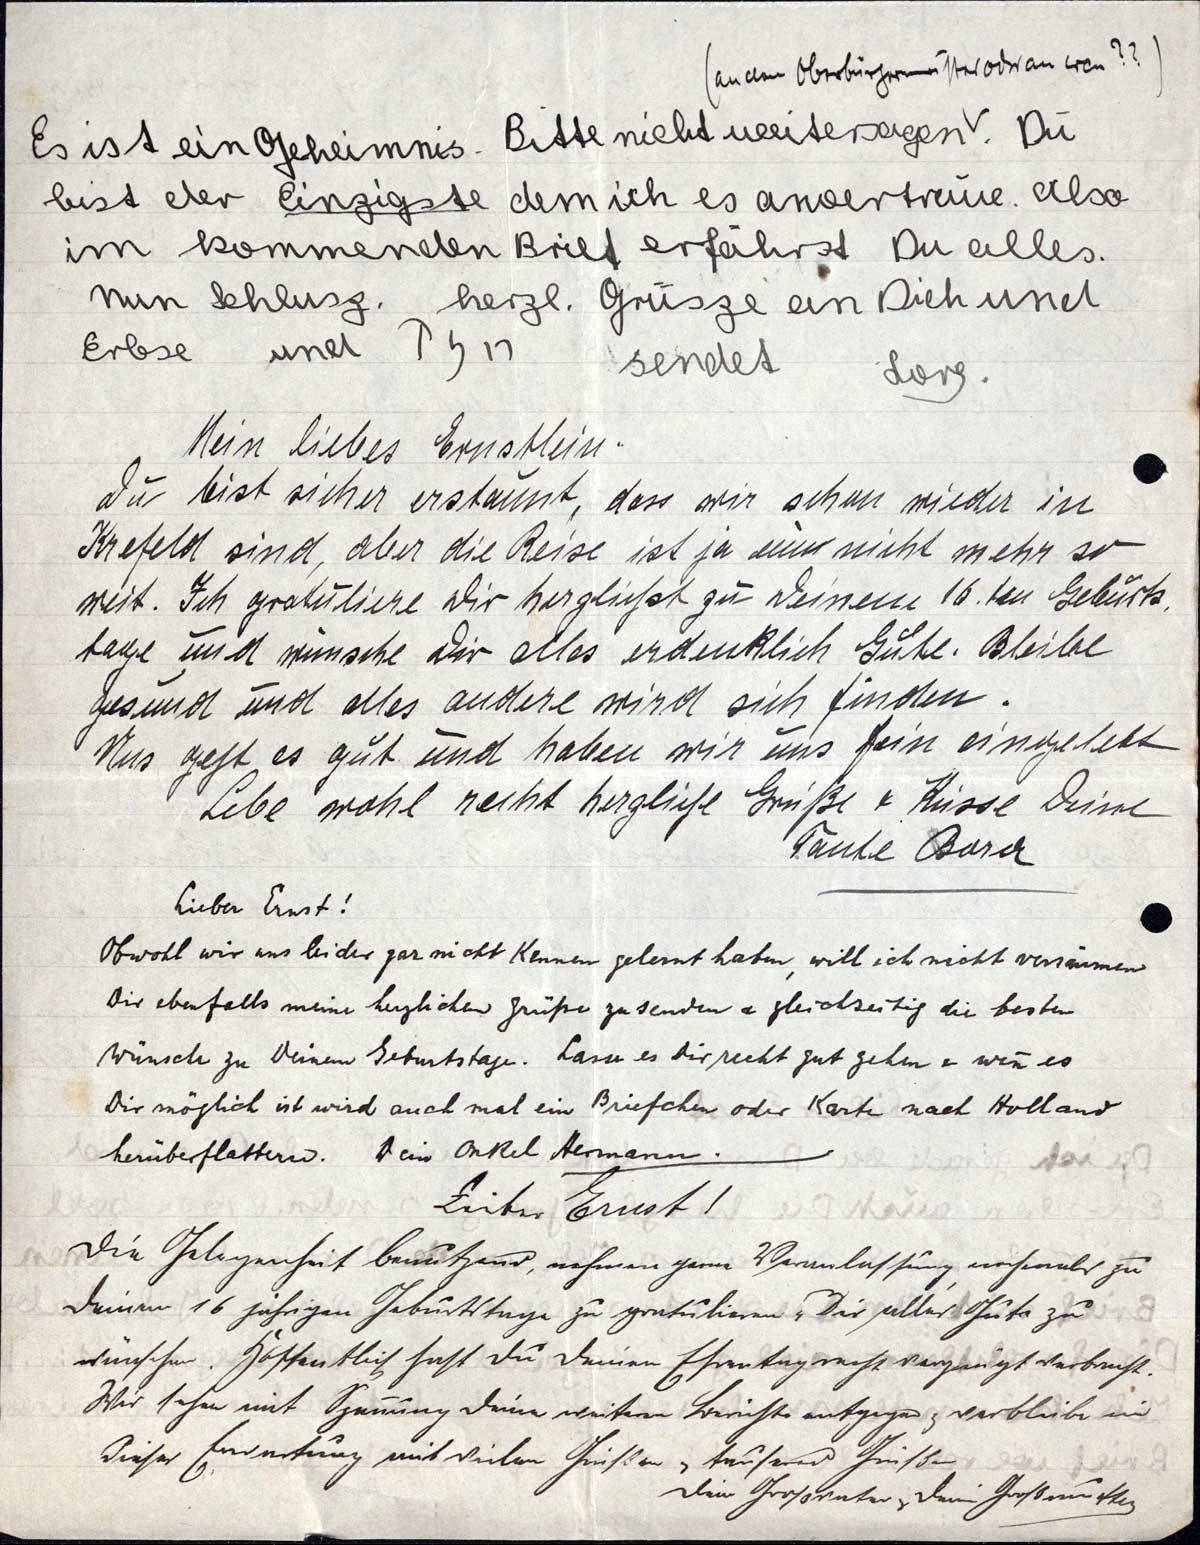 (an den Oberbürgermeister oder an wen ??)
Es ist ein Geheimnis. Bitte nicht weitersagen. Du
bist der Einzigste dem ich es anvertraue. Also
im kommenden Brief erfährst Du alles.
Nun Schlusz. herzl. Grüsze an Dich und
Erbse und sendet
Mein liebes Ernstlein.
Du bist sicher erstaunt, dass wir schon wieder in
Krefeld sind, aber die Reise ist ja nun nicht mehr so
weit. Ich gratuliere Dir herzlichst zu Deinem 16.ten Geburts,
tage und wünsche Dir alles erdenklich Gute. Bleibe
gesund und alles andere wird sich finden.
Uns geht es gut und haben wir uns fein eingelebt
Lebe wohl recht herzliche Grüße & Küsse Deine
Tante
Lieber Ernst!
Obwohl wir uns leider gar nicht kennen gelernt haben, will ich nicht versäumen
Dir ebenfalls meine herzlichen Grüße zu senden & gleichzeitig die besten
Wünsche zu Deinem Geburtstage. Lasse es Dir recht gut gehen & wen̄ es
Dir möglich ist wird auch mal ein Briefchen oder Karte nach Holland
herüberflattern. Dein Onkel Hermann.
Lieber Ernst!
Die Gelegenheit benutzend, nehmen gerne Veranlassung nochmals zu
Deinem 16 jährigen Geburtstage zu gratulieren & Dir alles Gute zu
wünschen. Hoffentlich hast Du Deinen Ehrentag recht vergnügt verbracht.
Wir sehen mit Spannung Deine weiteren Berichte entgegen & verbleibe in
dieser Erwartung mit vielen Grüßen & tausend
Dein Großvater & Deine Großmutter